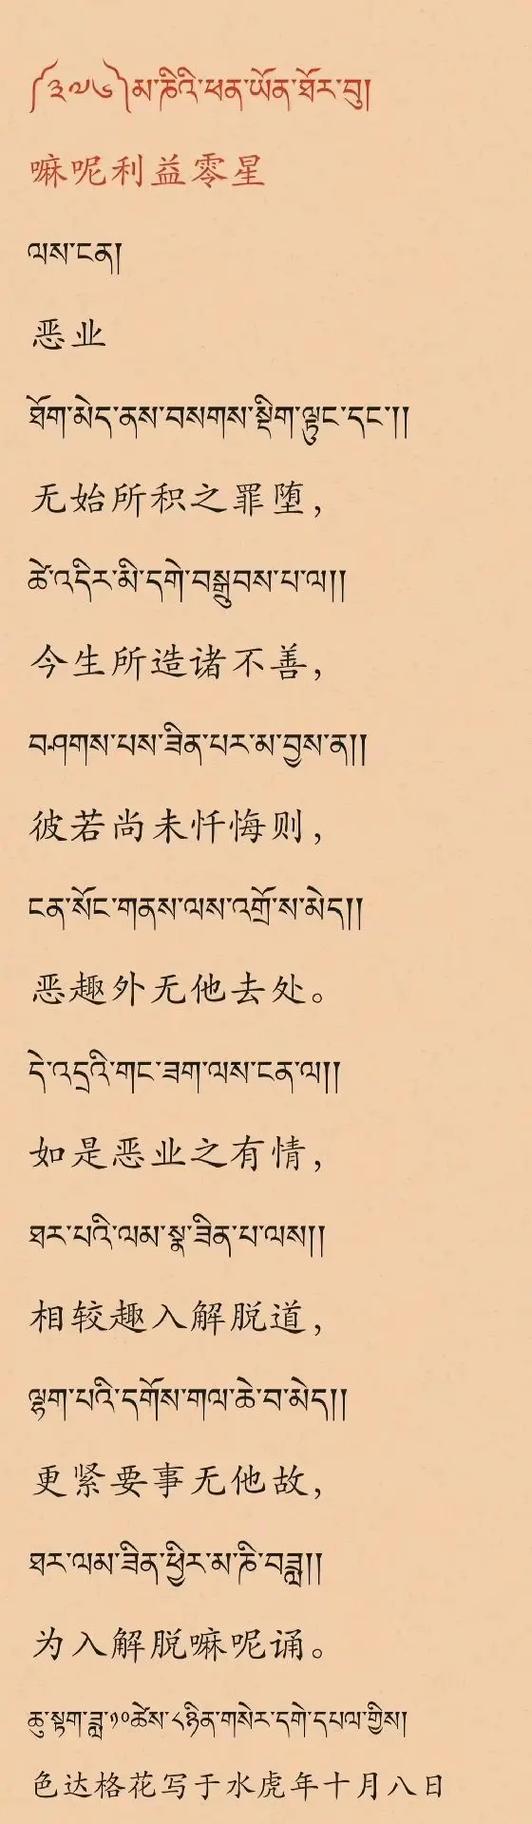 ༼༣༧༦༽མ་ཎིའི་ཕན་ཡོན་ཐོར་བུ།
嘛呢利益零星
ལས་ངན།
恶业
ཐོག་མེད་ནས་བསགས་སྡིག་ལྟུང་དང་།།
无始所积之罪堕，
ཚེ་འདིར་མི་དགེ་བསྒྲུབས་པ་ལ།།
今生所造诸不善，
བཤགས་པས་ཟིན་པར་མ་བྱས་ན།།
彼若尚未忏悔则，
ངན་སོང་གནས་ལས་འགྲོ་ས་མེད།།
恶趣外无他去处。
དེ་འདྲའི་གང་ཟག་ལས་ངན་ལ།།
如是恶业之有情，
ཐར་པའི་ལམ་སྣ་ཟིན་པ་ལས།།
相较趣入解脱道，
ལྷག་པའི་དགོས་གལ་ཆེ་བ་མེད།།
更紧要事无他故，
ཐར་ལམ་ཟིན་ཕྱིར་མ་ཎི་བཟླ།།
为入解脱嘛呢诵。
ཆུ་སྟག་ཟླ་༡༠ཚེས་༨ཉིན་གསེར་དགེ་དཔལ་གྱིས།
色达格花写于水虎年十月八日